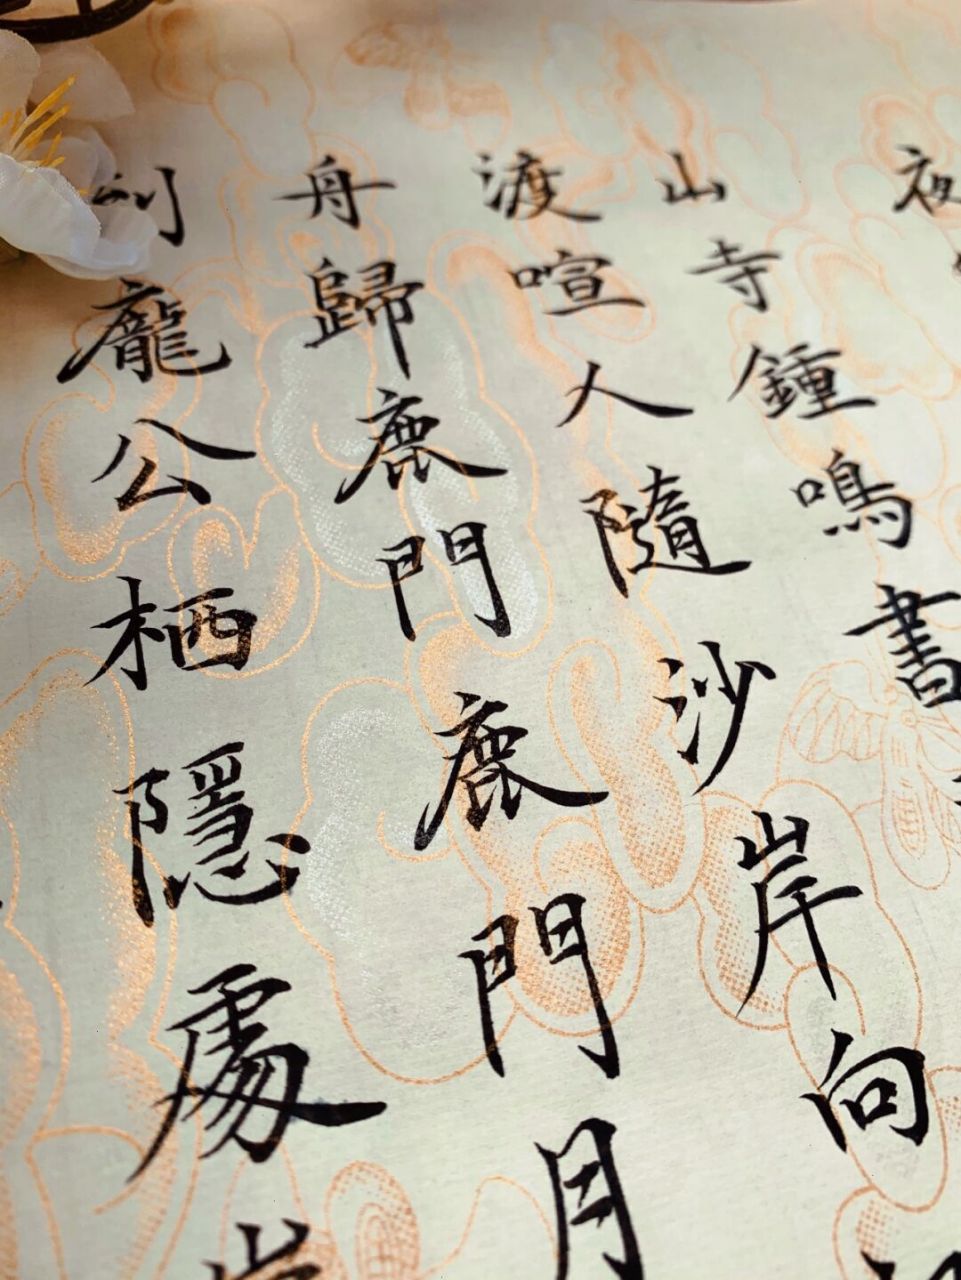 夜
山寺鍾鳴書
渡喧人隨沙岸向
舟歸鹿門鹿門月
到龐公栖隱處